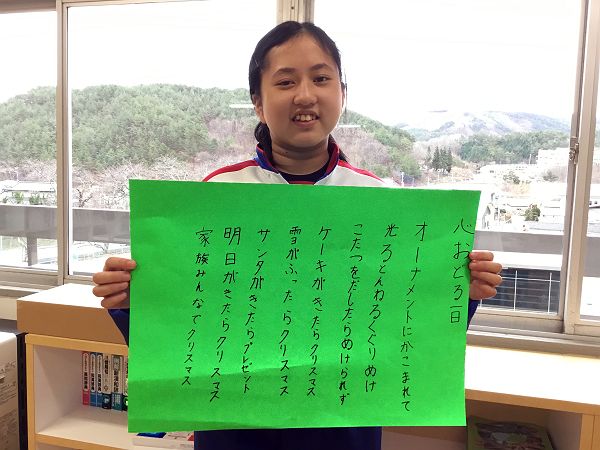 心おどる一日
オーナメントにかこまれて
光るとんねるくぐりぬけ
こたつをだしたらぬけられず
ケーキがきたらクリスマス
雪がふったらクリスマス
サンタがきたらプレゼント
明日がきたらクリスマス
家族みんなでクリスマス